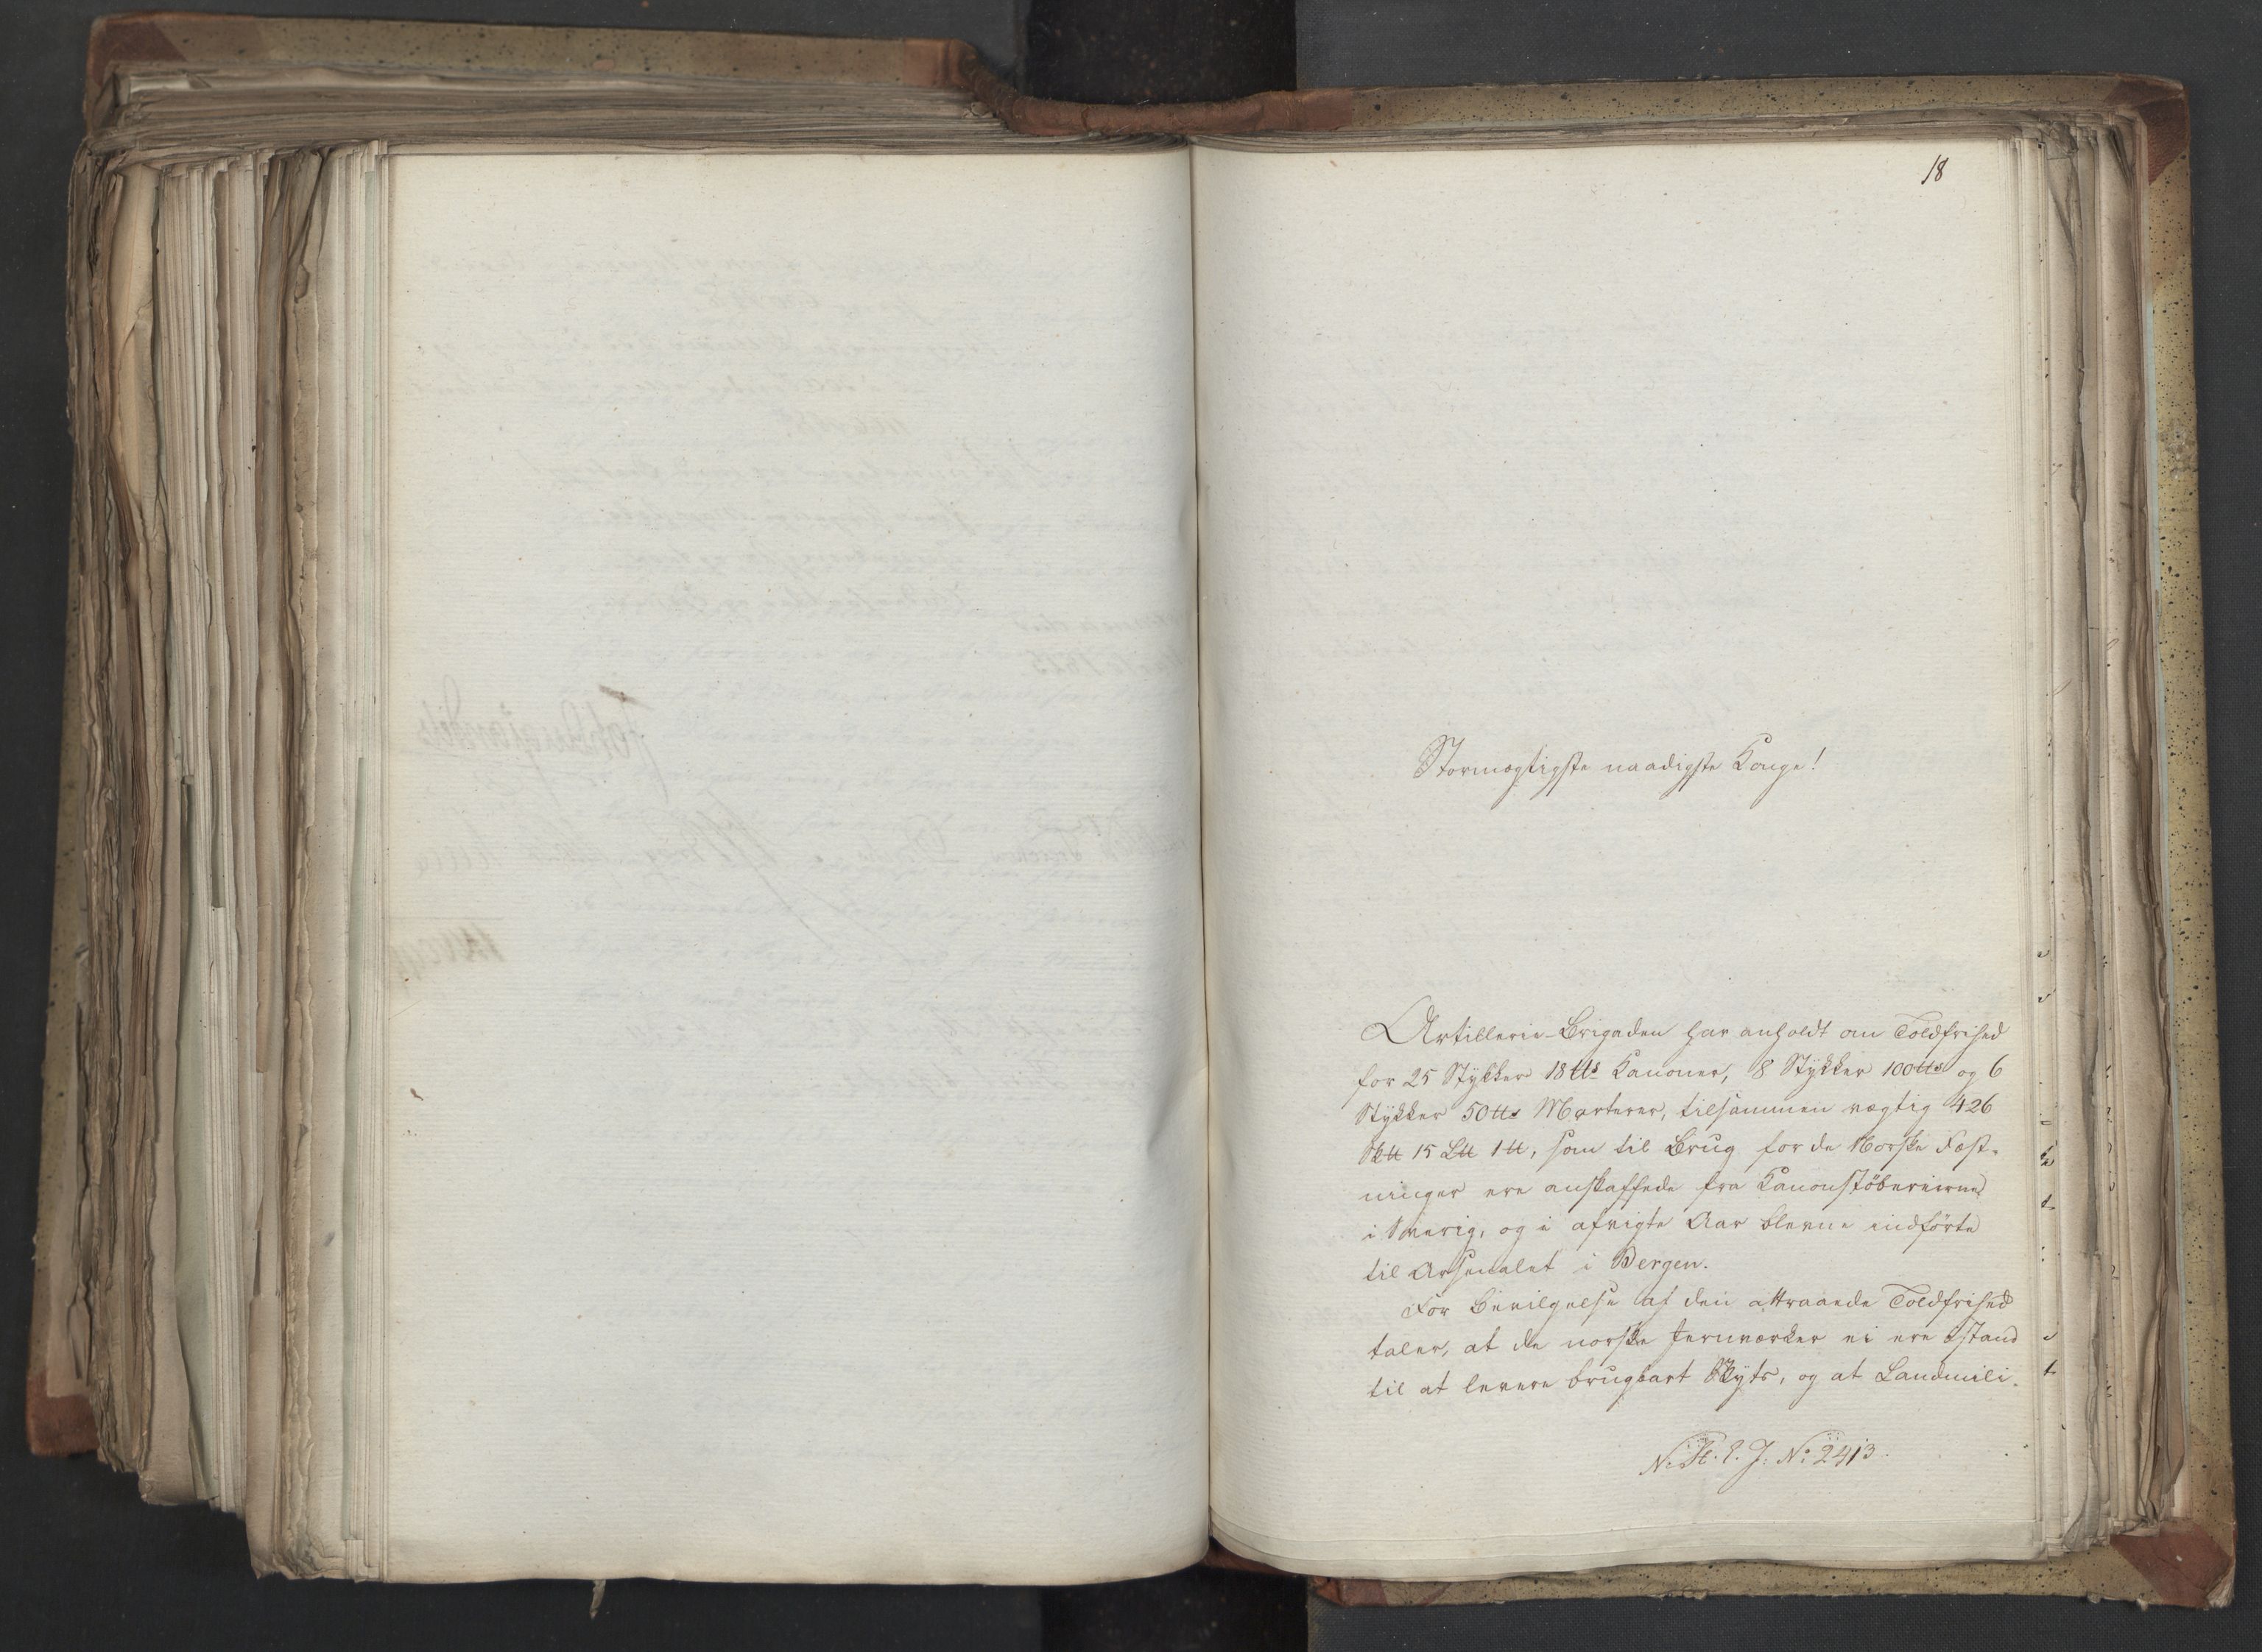 18
Stormægtigste naadigste Konge!
Artillerie-Brigaden har anholdt om Toldfrihed
for 25 Stykker 18 ℔s Kanoner, 8 Stykker 100 ℔s og 6
Stykker 50 ℔s Morterer, tilsammen vægtig 426
Sk℔ 15 L℔ 1 ℔, som til Brug for de Norske Fæst-
ninger ere anskaffede fra Kanonstöberierne
i Sverig, og i afvigte Aar blevne indförte
til Arsenalet i Bergen.
For Bevilgelse af den attraaede Toldfrihed
taler, at de norske Jernværker ei ere istand
til at levere brugbart Skyts, og at Landmili-
No 2413.